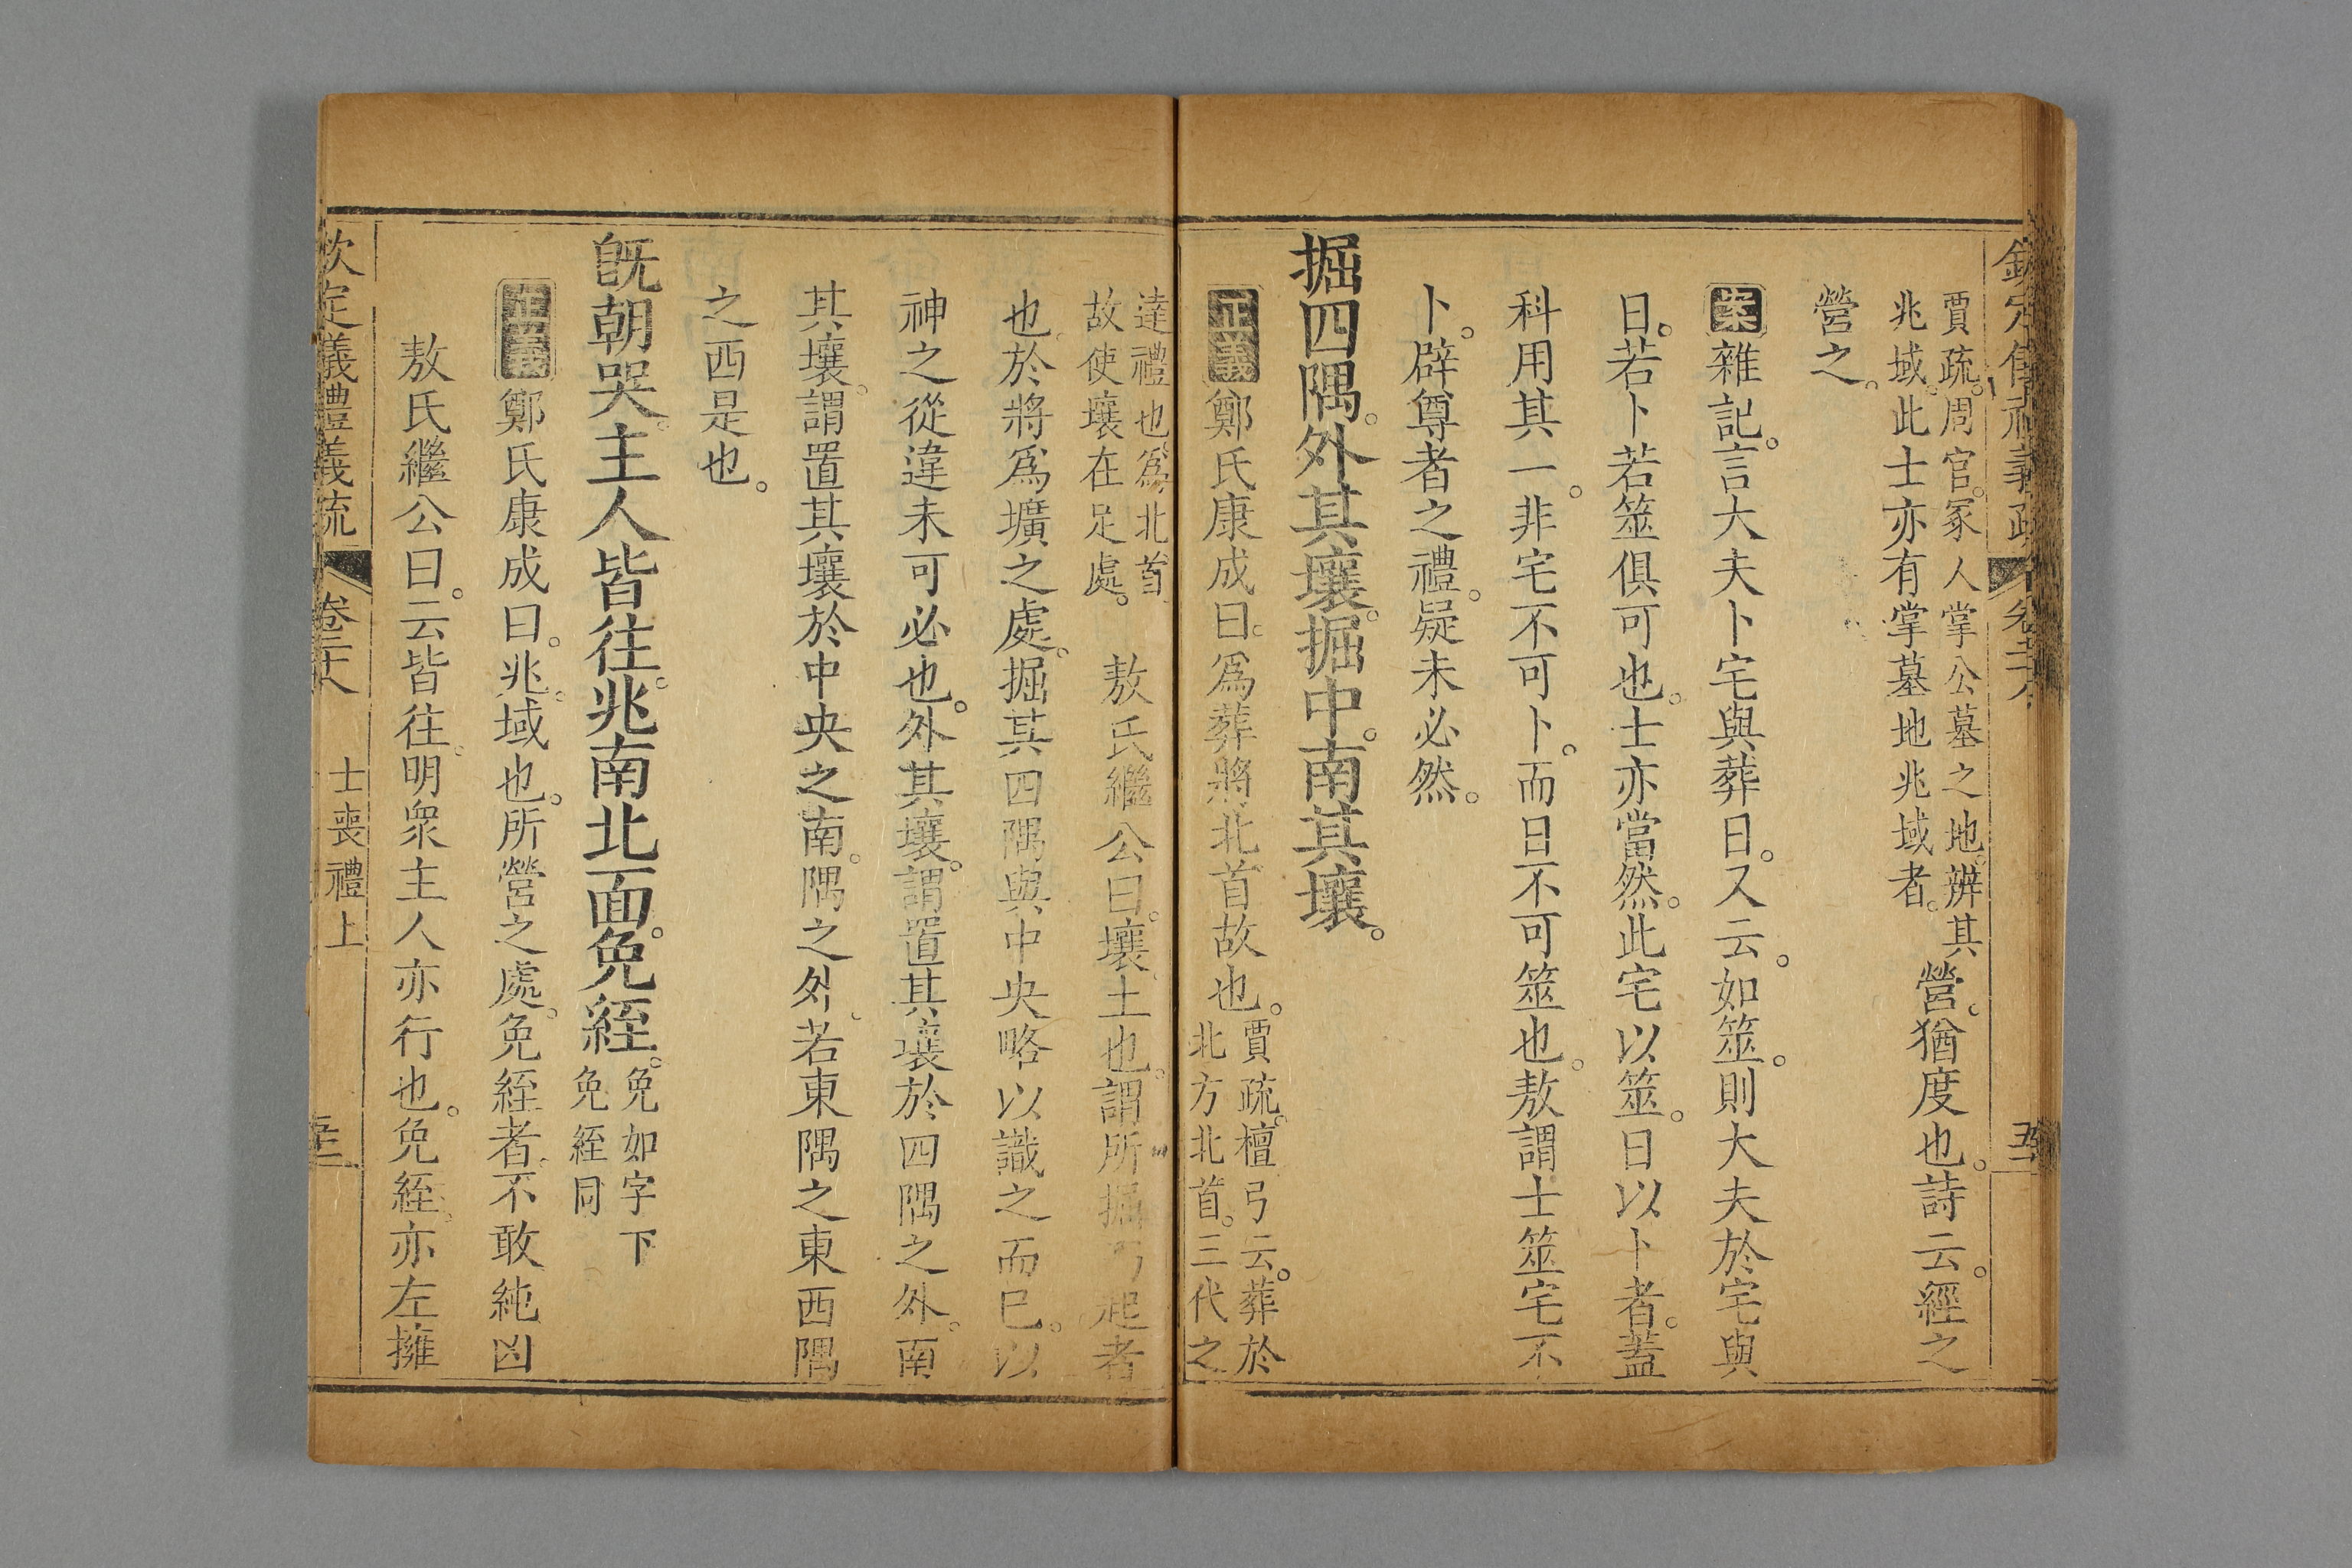 賈疏。周官。冢人掌公墓之地。辨其
兆域。此士亦有掌墓地兆域者。
營。猶度也。詩云。經之
營之。
案雜記。言大夫卜宅與葬日。又云。如筮。則大夫於宅與
日。若卜若筮俱可也。士亦當然。此宅以筮。日以卜者。蓋
科用其一。非宅不可卜。而日不可筮也。敖謂士筮宅不
卜。辟尊者之禮。疑未必然。
掘四隅。外其壤。掘中。南其壤。
正義鄭氏康成曰。爲葬將北首故也。
賈疏。檀弓云。葬於
北方北首。三代之
達禮也。爲北首
故使壤在足處。
敖氏繼公曰。壤。土也。謂所掘而起者
也。於將爲壙之處。掘其四隅與中央略以識之而已。以
神之從違未可必也。外其壤。謂置其壤於四隅之外。南
其壤。謂置其壤於中央之南。隅之外。若東隅之東西隅
之西是也。
旣朝哭。主人皆往。兆南北面。免絰。
免如字下
免絰同
正義鄭氏康成曰。兆。域也。所營之處。免絰者。不敢純凶
敖氏繼公曰。云皆往。明眾主人亦行也。免絰。亦左擁
欽定儀禮義疏
卷三十八
士喪禮上